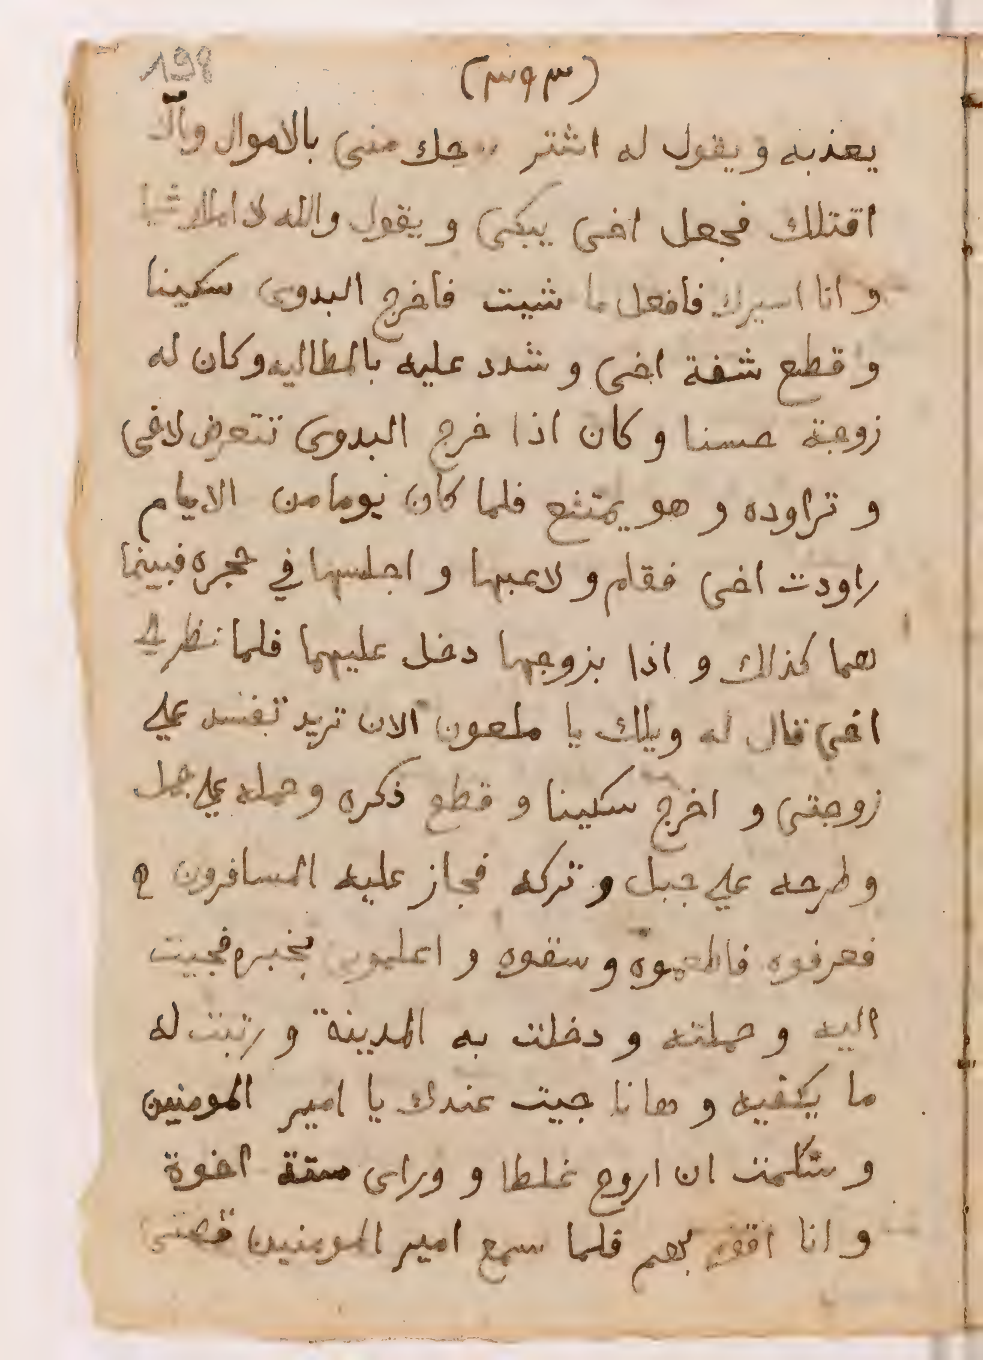 198
(٣٩٣)
يعذبه ويقول له اشتر روحك مني بالاموال والا
اقتلك فجعل اخى يبكى ويقول والله لا املك شيا
وانا اسيرك فافعل ما شيت فاخرج البدوى سكينا
وقطع شفة اخى وشدد عليه بالمطاليه وكان له
زوجة حسنا وكان اذا خرج البدوى تتعرض لاخى
وتراوده وهو يمتنع فلما كان يوما من الايام
راودت اخى فقام ولاعبها واجلسها في حجره فبينما
هما كذالك واذا بزوجها دخل عليهما فلما نظر الى
اخى قال له ويلك يا ملعون الان تريد تفسد على
زوجتى واخرج سكينا وقطع ذكره وحمله على جمل
وطرحه على جبل وتركه فجاز عليه المسافرون
فعرفوه فاطعموه وسقوه واعلمونى بخبره فجيت
اليه وحملته ودخلت به المدينة ورتبت له
ما يكفيه وهانا جيت عندك يا امير المومنين
ان اروح غلطا وورای ستة اخوة
وانا اقف بهم فلما سمع امير المومنين قصتى